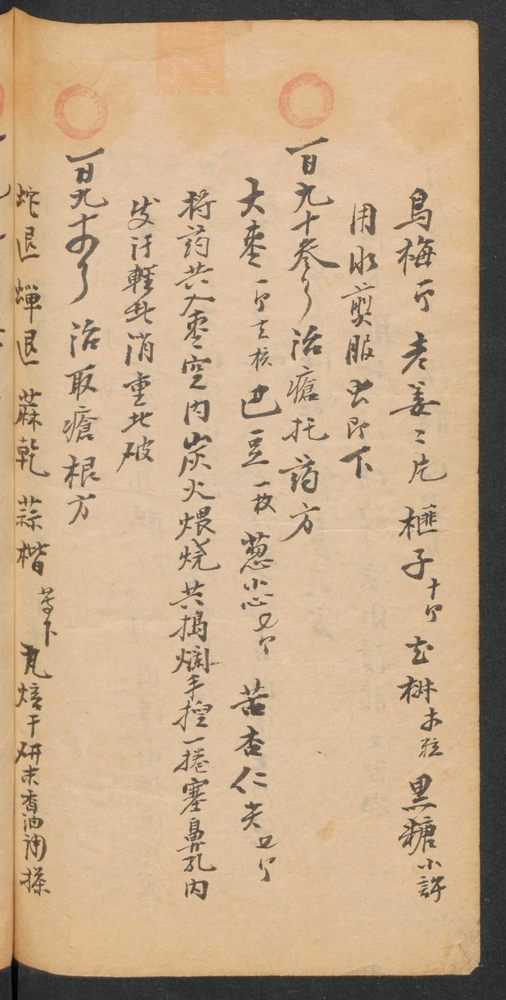 烏梅 个 老姜二片 榧子十个 花椒 粒 黑糖小許
用水煎服虫即下
一百九十叁 治瘡托葯方
大棗一个去核 巴豆一枚 葱小心 个 苦杏仁尖 个
将葯共入棗空内炭火煨烧共搗爛手控一捲塞鼻孔内
发汗輕者消重者破
一百九十 治取瘡根方
蛇退 蟬退 蔴乾 蒜楷 等下 瓦焙干研末香油調搽